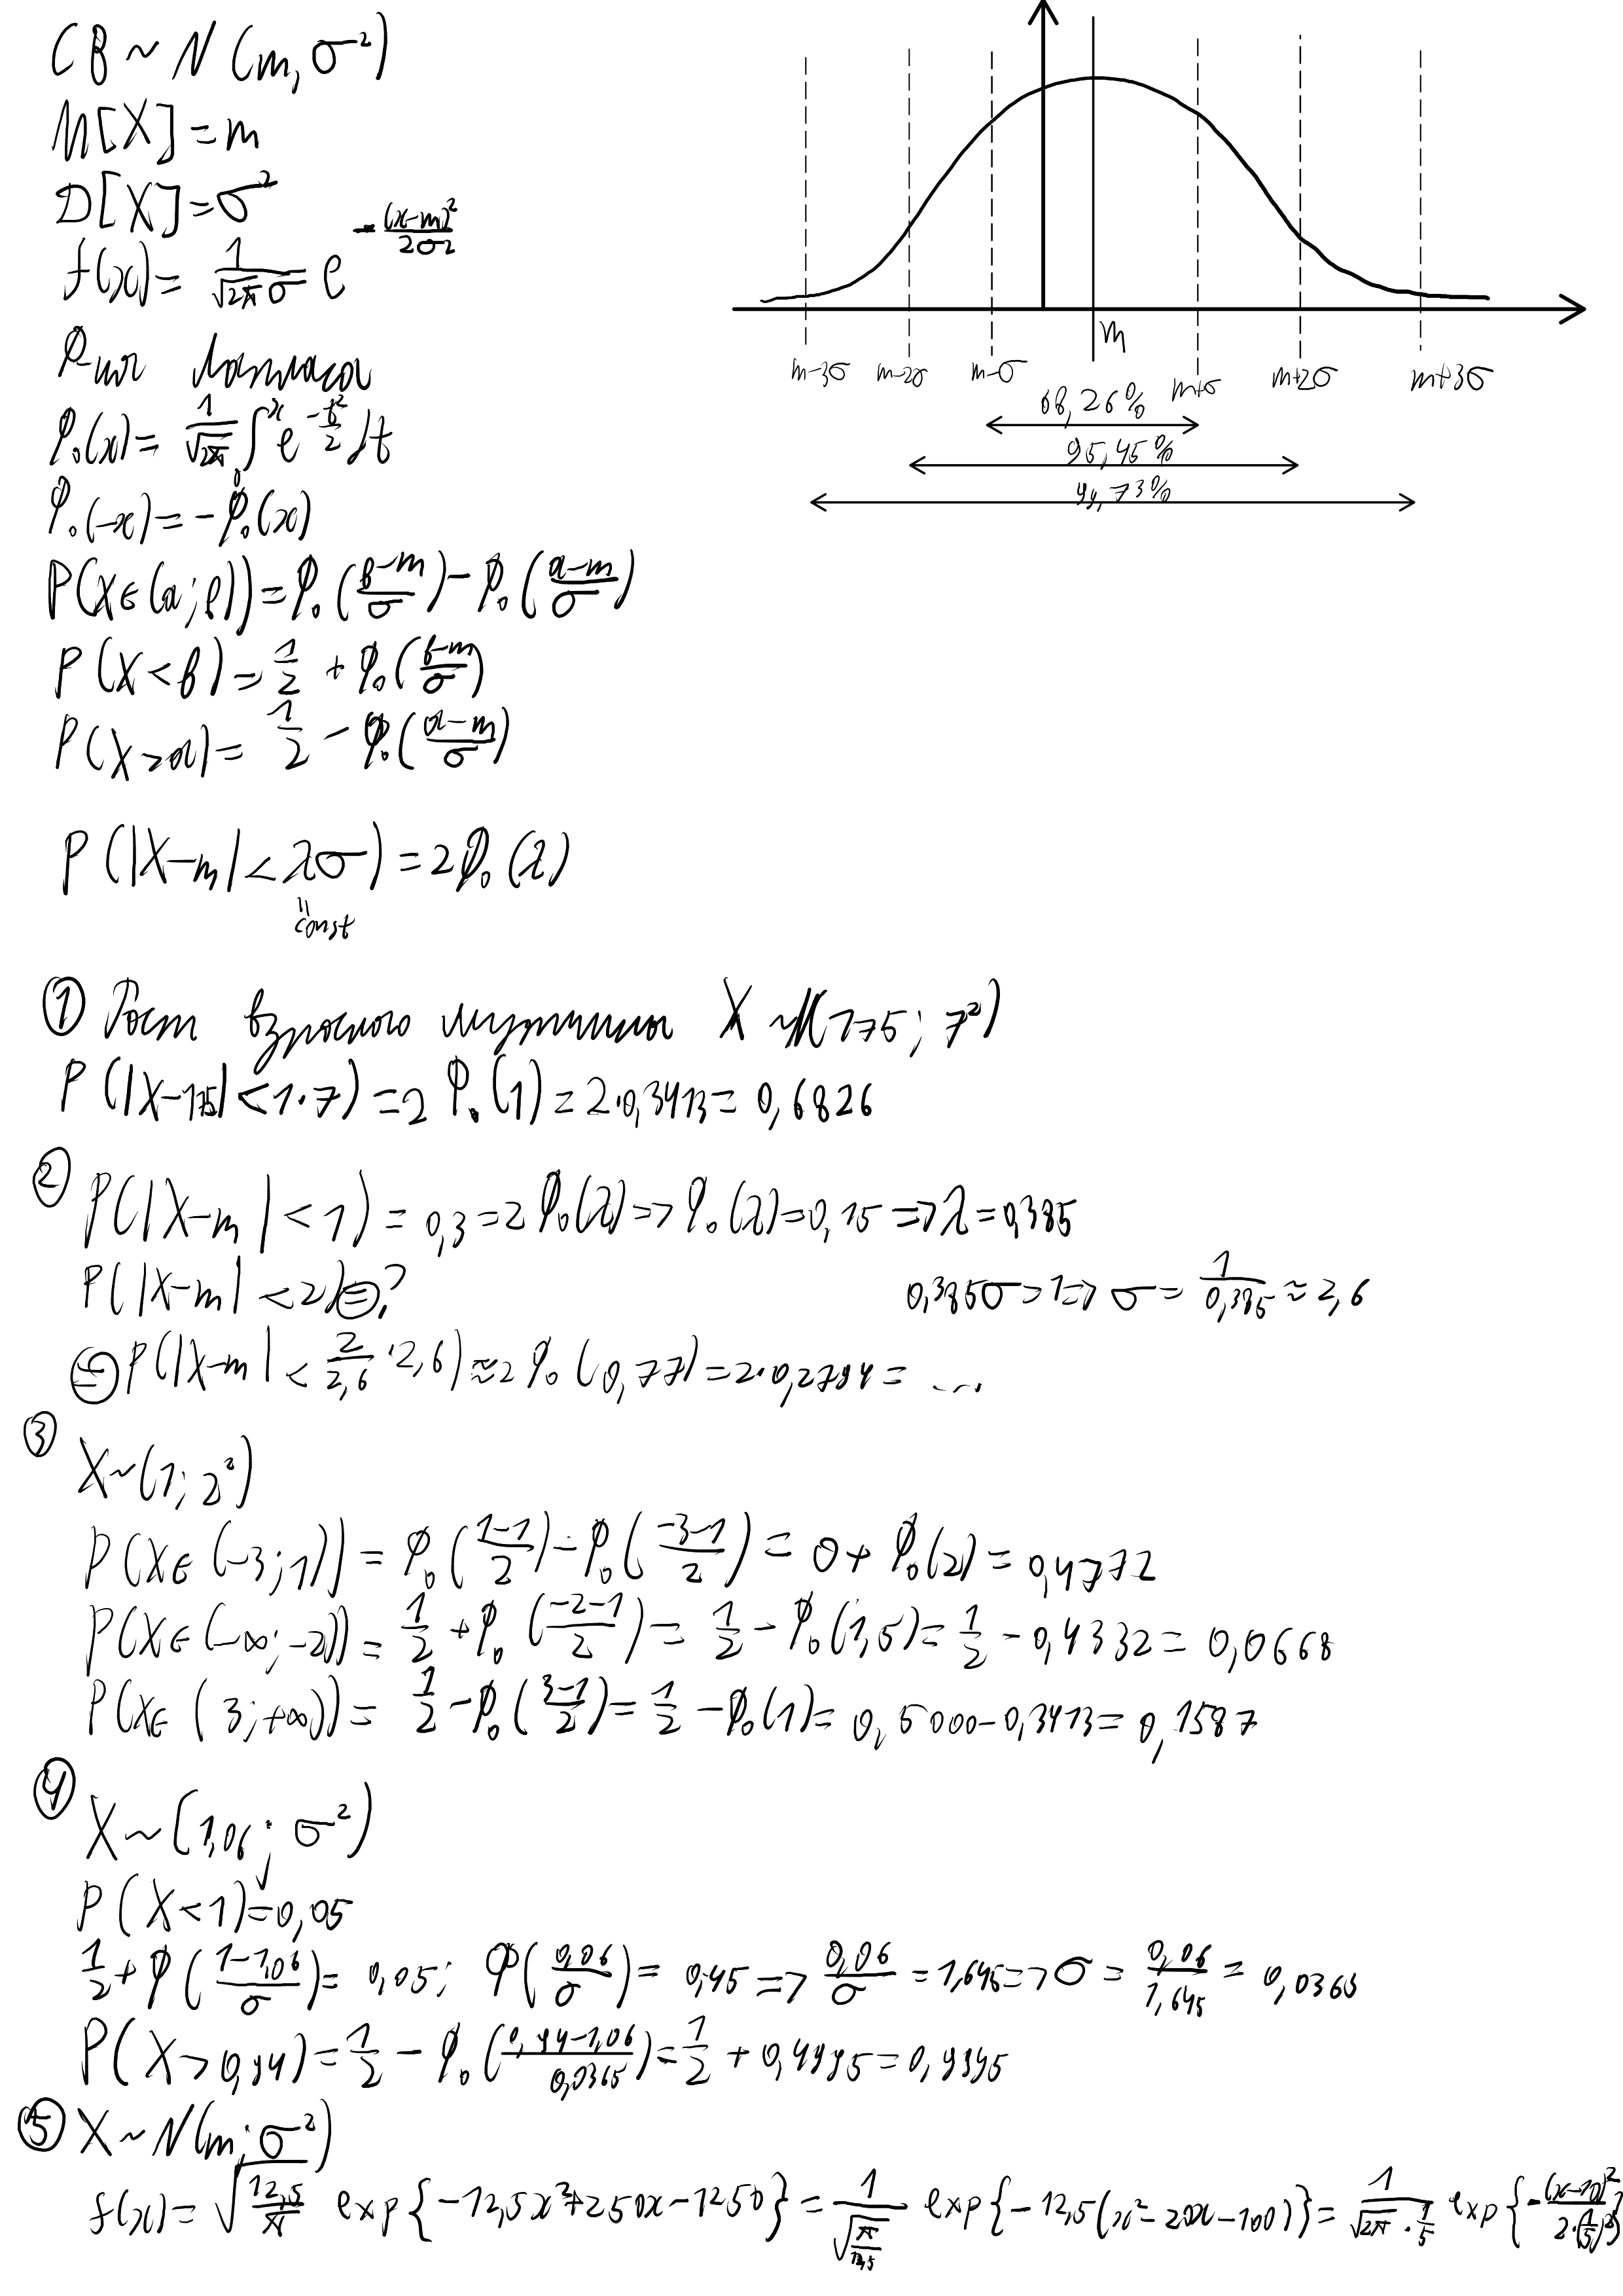 СВ ~ N(m, σ²)
M[X] = m
D[X] = σ²
f(x) = 1/(√2π σ) e^(-(x-m)²/(2σ²))
m-3σ m-2σ m-σ m m+σ m+2σ m+3σ
68,26%
95,45%
99,73%
Ф-ция Лапласа
Φ₀(x) = 1/√2π ∫₀ˣ e^(-t²/2) dt
Φ₀(-x) = -Φ₀(x)
P(X∈(a;b)) = Φ₀((b-m)/σ) - Φ₀((a-m)/σ)
P(X<b) = 1/2 + Φ₀((b-m)/σ)
P(X>a) = 1/2 - Φ₀((a-m)/σ)
P(|X-m| < λσ) = 2Φ₀(λ)
const
① Рост взрослого мужчины X ~ N(175; 7²)
P(|X-175| < 1·7) = 2Φ₀(1) = 2·0,3413 = 0,6826
② P(|X-m| < 1) = 0,3 = 2Φ₀(λ) => Φ₀(λ) = 0,15 => λ = 0,385
P(|X-m| < 2) = ?
0,385σ = 1 => σ = 1/0,385 ≈ 2,6
= P(|X-m| < 2/2,6 · 2,6) ≈ 2Φ₀(0,77) = 2·0,2794 = ...
③ X ~ (1; 2²)
P(X∈(-3;1)) = Φ₀((1-1)/2) - Φ₀((-3-1)/2) = 0 + Φ₀(2) = 0,4772
P(X∈(-∞;-2)) = 1/2 + Φ₀((-2-1)/2) = 1/2 - Φ₀(1,5) = 1/2 - 0,4332 = 0,0668
P(X∈(3;+∞)) = 1/2 - Φ₀((3-1)/2) = 1/2 - Φ₀(1) = 0,5000 - 0,3413 = 0,1587
④ X ~ (1,06; σ²)
P(X<1) = 0,05
1/2 + Φ((1-1,06)/σ) = 0,05; Φ(0,06/σ) = 0,45 => 0,06/σ = 1,645 => σ = 0,06/1,645 = 0,0365
P(X>0,94) = 1/2 - Φ₀((0,94-1,06)/0,0365) = 1/2 + 0,4995 = 0,9995
⑤ X ~ N(m; σ²)
f(x) = √(12,5/π) exp{-12,5x²+250x-1250} = 1/√(π/12,5) exp{-12,5(x²-20x-100)} = 1/(√2π · 1/5) exp{-(x-10)²/(2·(1/5)²)}